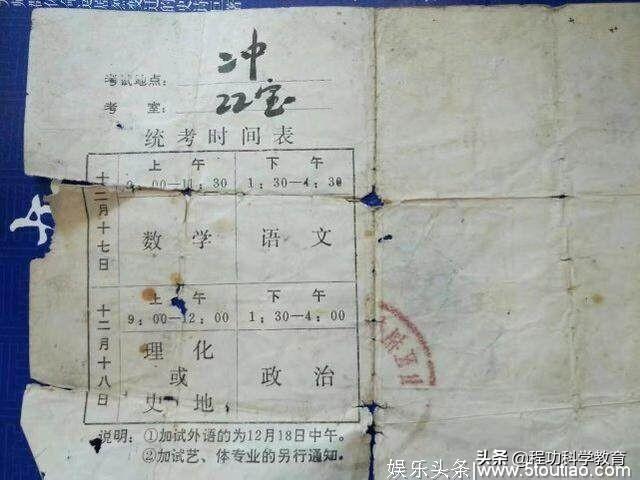 考试地点：二中
考　室：22室
统考时间表
上午　下午
十二月十七日
9：00—11：30　1：30—4：30
数学　语文
上午　下午
十二月十八日
9：00—12：00　1：30—4：00
理化
或
史地
政治
说明：①加试外语的为12月18日中午。
②加试艺、体专业的另行通知。
头条 @程功科学教育
娱乐头条 www.5toutiao.com